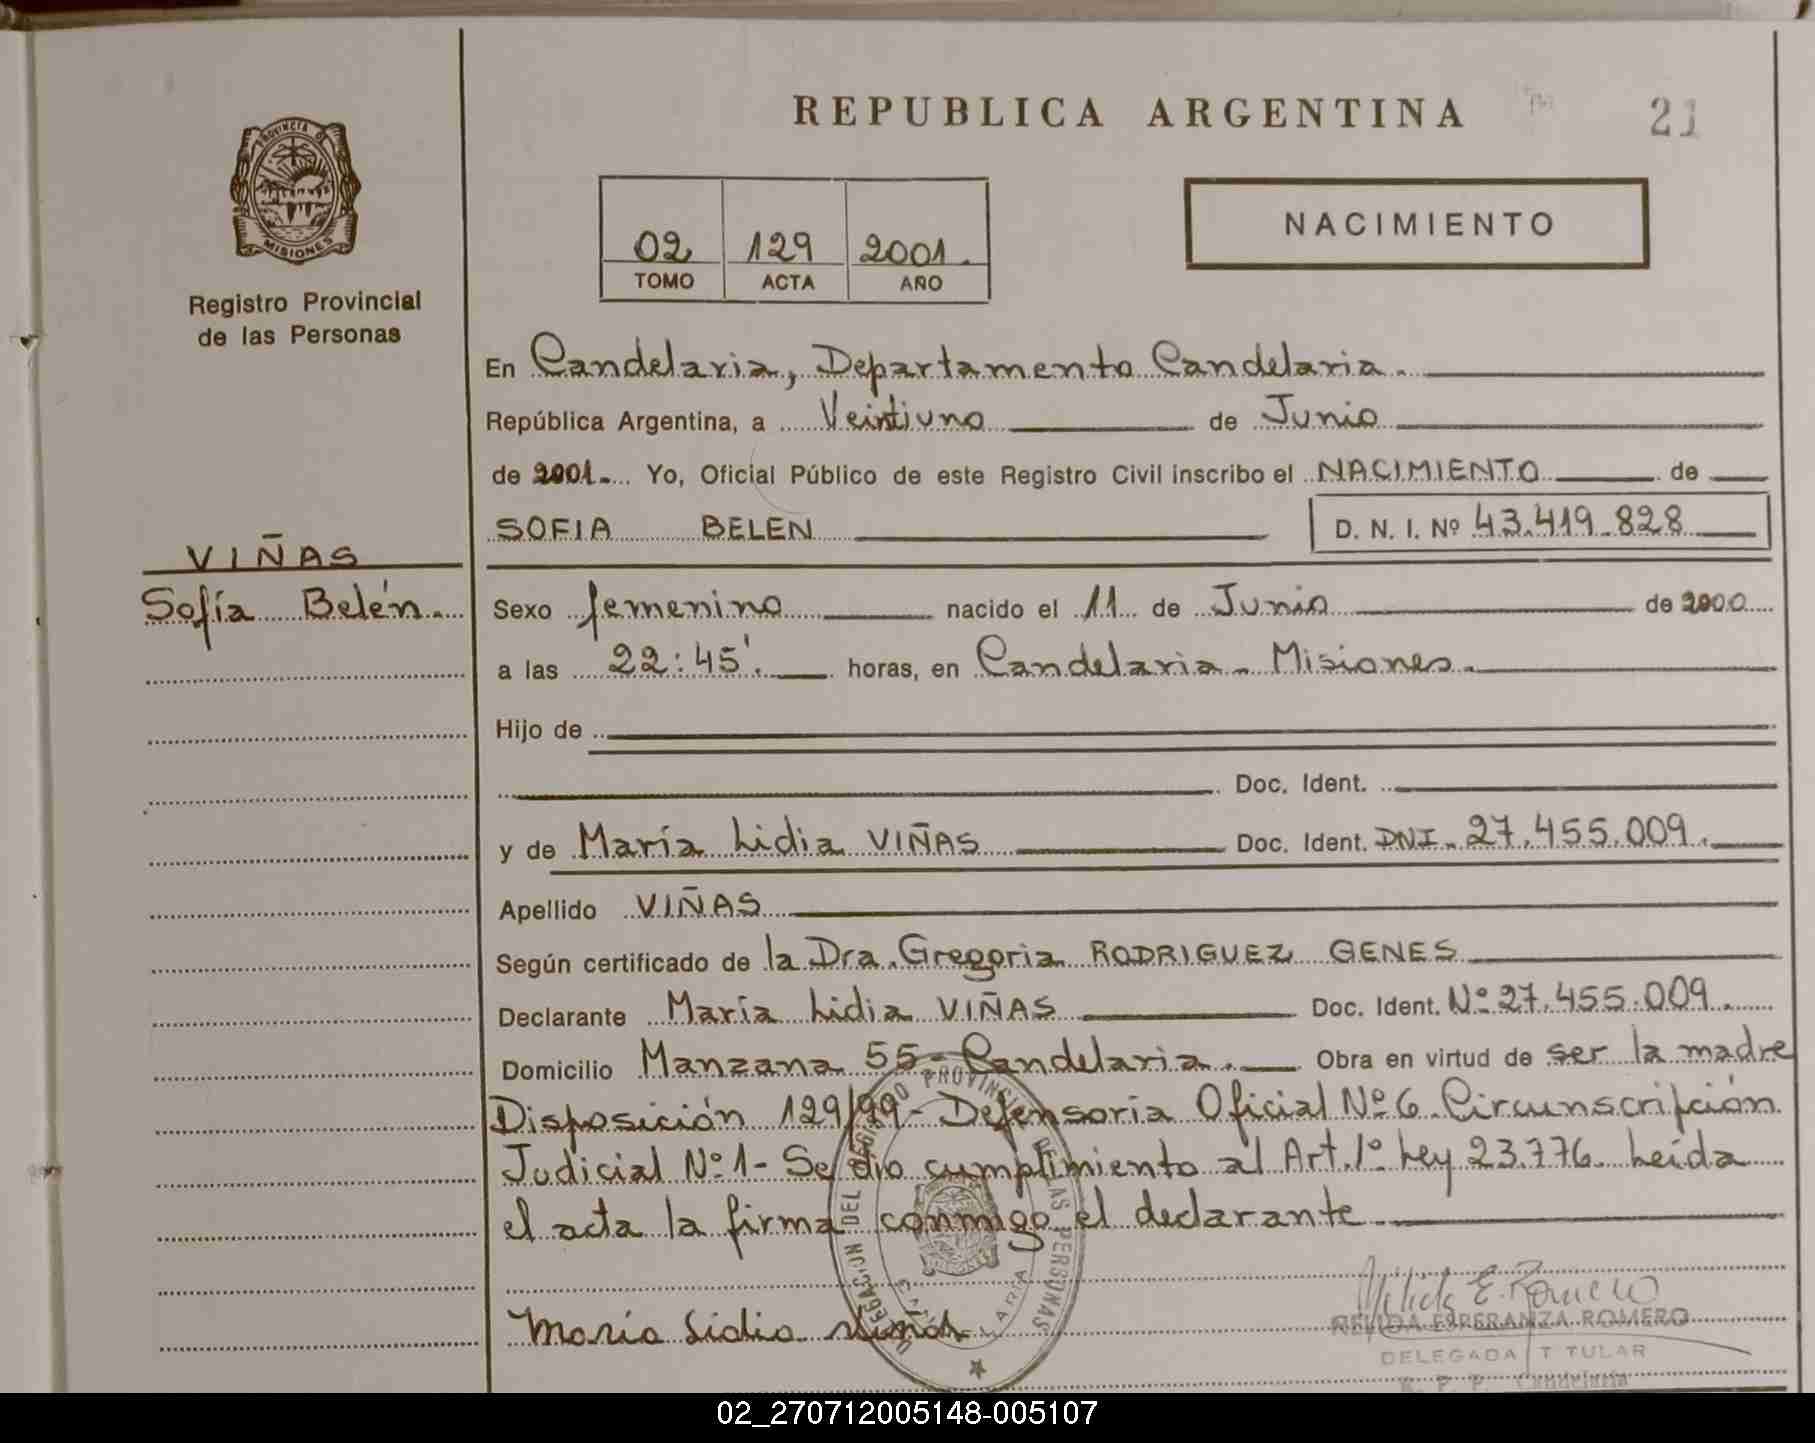 REPUBLICA ARGENTINA
21
PROVINCIA DE
MISIONES
Registro Provincial
de las Personas
02 129 2001.
TOMO ACTA AÑO
NACIMIENTO
En Candelaria, Departamento Candelaria.
República Argentina, a Veintiuno de Junio
de 2001. Yo, Oficial Público de este Registro Civil inscribo el NACIMIENTO de
SOFIA BELEN D. N. I. Nº 43.419.828
VIÑAS
Sofía Belén.
Sexo femenino nacido el 11 de Junio de 2000
a las 22:45'. horas, en Candelaria - Misiones.
Hijo de
Doc. Ident.
y de María Lidia VIÑAS Doc. Ident. DNI. 27.455.009.
Apellido VIÑAS
Según certificado de la Dra. Gregoria RODRIGUEZ GENES
Declarante María Lidia VIÑAS Doc. Ident. Nº 27.455.009.
Domicilio Manzana 55 - Candelaria. Obra en virtud de ser la madre
Disposición 129/99 - Defensoría Oficial Nº 6. Circunscripción
Judicial Nº 1 - Se dio cumplimiento al Art. 1º Ley 23.776. Leída
el acta la firma conmigo el declarante
DELEGACION DEL REGISTRO PROVINCIAL DE LAS PERSONAS
María Lidia Viñas
Nélida E. Romero
NELIDA ESPERANZA ROMERO
DELEGADA TITULAR
R. P. P. Candelaria
02_270712005148-005107